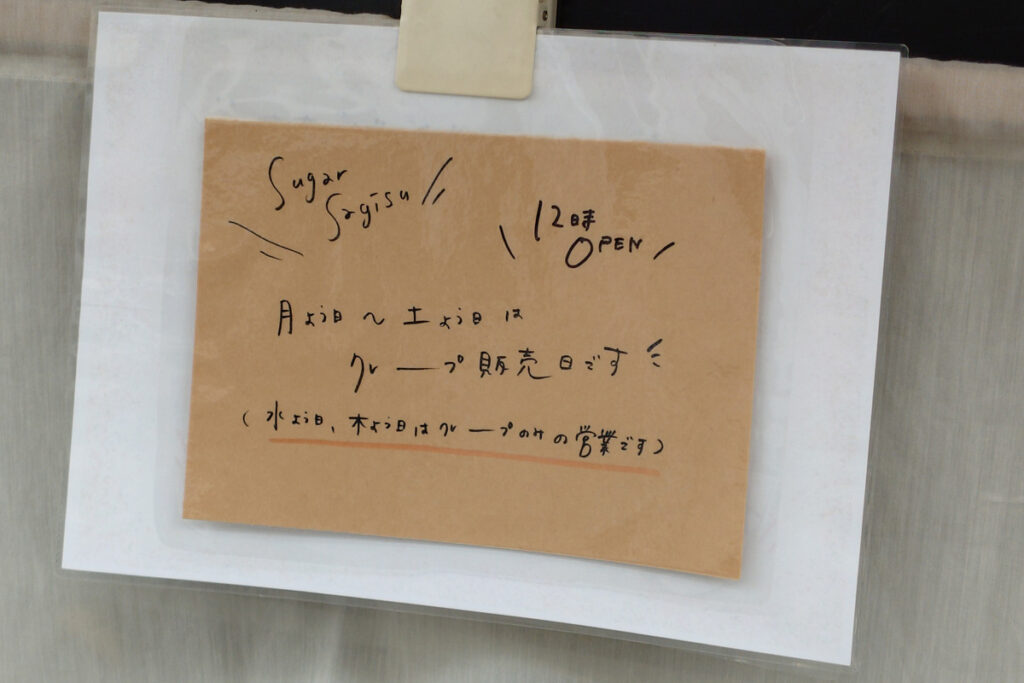 Sugar
Sagisu
12時
OPEN
月よう日～土よう日は
クレープ販売日です
(水よう日、木よう日はクレープのみの営業です)